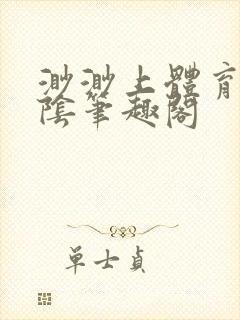 渺渺上體育
陰筆趣閣
單士貞